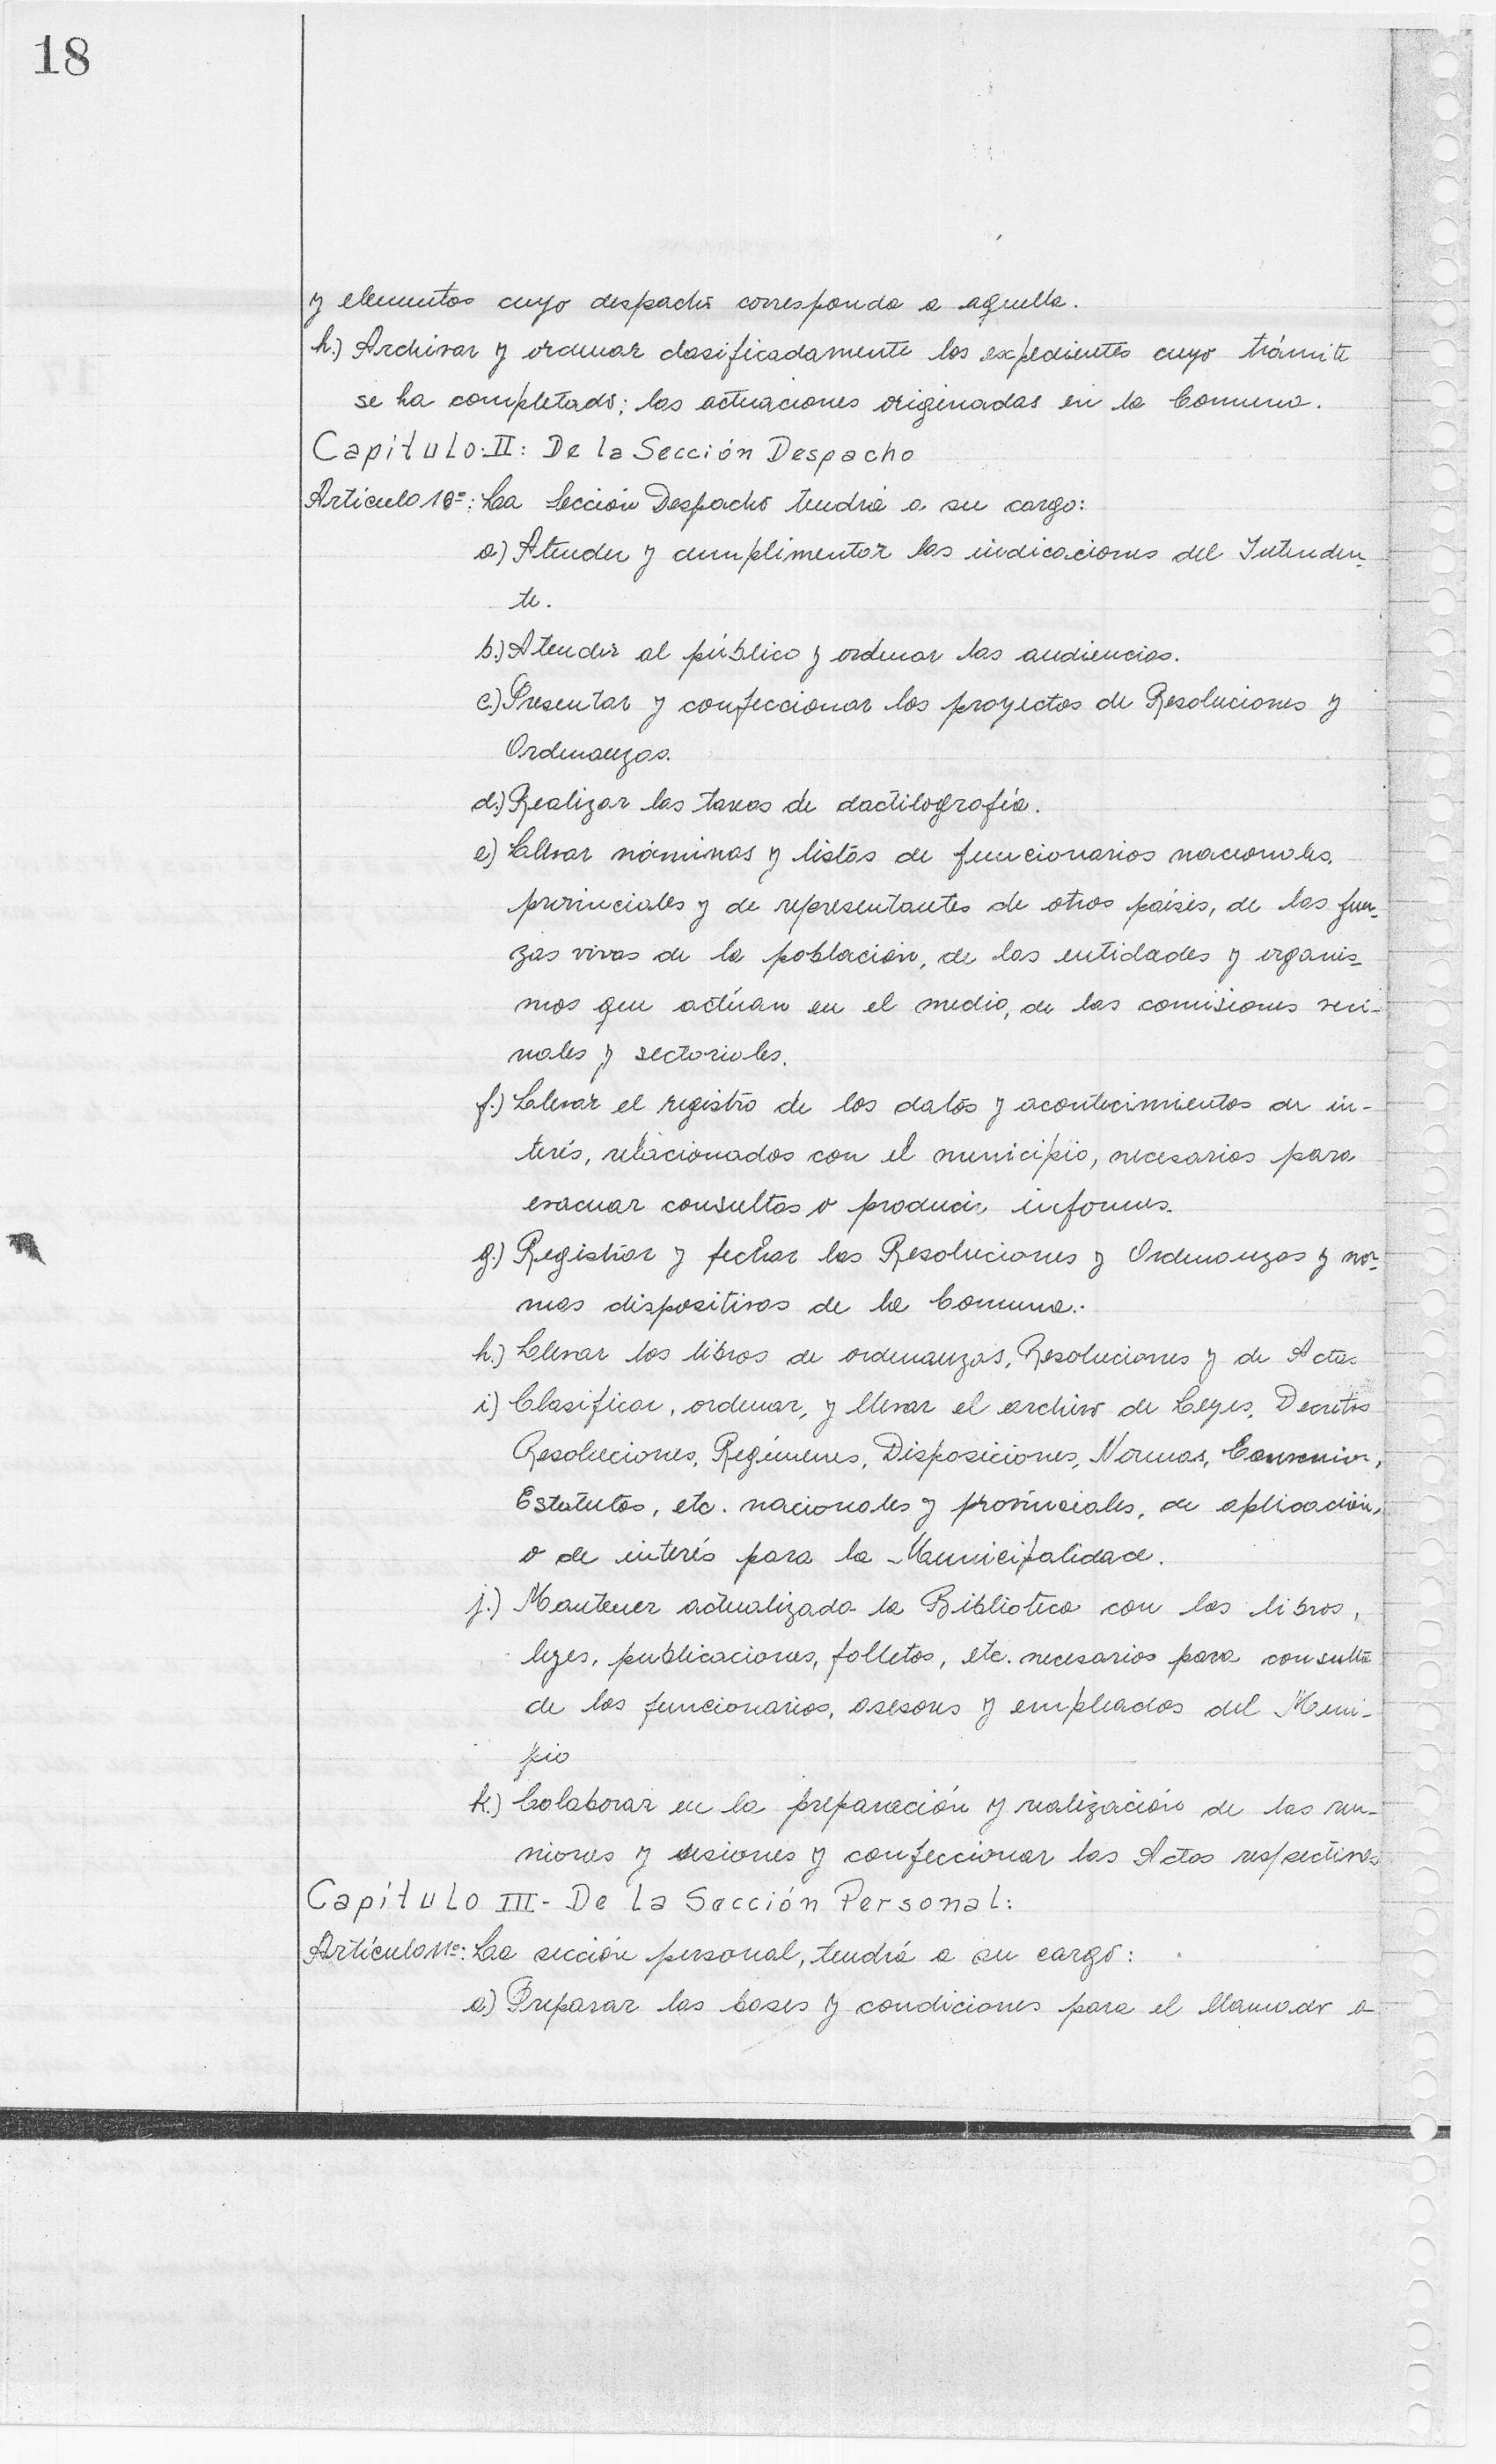 18
y elementos cuyo despacho corresponda a aquella.
h.) Archivar y ordenar clasificadamente los expedientes cuyo trámite
se ha completado; las actuaciones originadas en la Comuna.
Capítulo II: De la Sección Despacho
Artículo 10º: La Sección Despacho tendrá a su cargo:
a) Atender y cumplimentar las indicaciones del Intenden-
te.
b.) Atender al público y ordenar las audiencias.
c.) Presentar y confeccionar los proyectos de Resoluciones y
Ordenanzas.
d.) Realizar las tareas de dactilografía.
e) Llevar nóminas y listas de funcionarios nacionales,
provinciales y de representantes de otros países, de las fuer-
zas vivas de la población, de las entidades y organis-
mos que actúan en el medio, de las comisiones veci-
nales y sectoriales.
f.) Llevar el registro de los datos y acontecimientos de in-
terés, relacionados con el municipio, necesarios para
evacuar consultas o producir informes.
g.) Registrar y fechar las Resoluciones y Ordenanzas y nor-
mas dispositivas de la Comuna.
h.) Llevar los libros de ordenanzas, Resoluciones y de Actas
i) Clasificar, ordenar, y llevar el archivo de Leyes, Decretos
Resoluciones, Regímenes, Disposiciones, Normas, Convenios,
Estatutos, etc. nacionales y provinciales, de aplicación,
o de interés para la Municipalidad.
j.) Mantener actualizada la Biblioteca con los libros,
leyes, publicaciones, folletos, etc. necesarios para consulta
de los funcionarios, asesores y empleados del Muni-
pio
k.) Colaborar en la preparación y realización de las reu-
niones y sesiones y confeccionar las Actas respectivas
Capítulo III - De la Sección Personal:
Artículo 11º: La sección personal, tendrá a su cargo:
a) Preparar las bases y condiciones para el llamado a